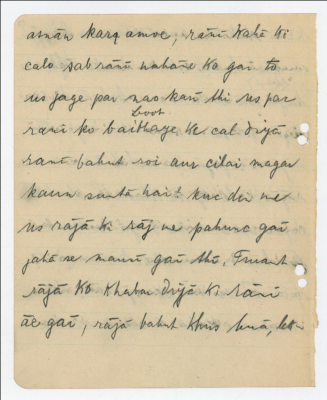 asnān karā amoe, rānī kahī ki
calo sab rānī nahāne ko gaī to
us jage par nao karī thī us par
Boot
rānī ko baithaye ke cal diyā
rānī bahut roi aur cilai magar
kaun suntā hai! kuc der me
us rājā ki rāj me pahunc gaī
jahā se mauni gaī thī. Turant
rājā ko khabar diyā ki rānī
āe gaī, rājā bahut khus huā, lek-